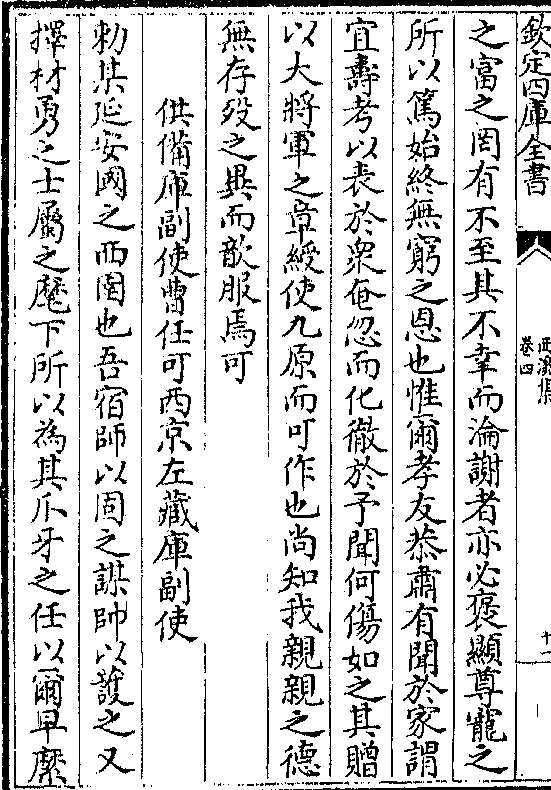 欽定四庫全書
西溪集
卷四
十一
之富之罔有不至其不幸而淪謝者亦必褒顯尊寵之
所以篤始終無窮之恩也惟爾孝友恭肅有聞於家謂
宜壽考以表於衆奄忽而化徹於予聞何傷如之其贈
以大將軍之章綬使九原而可作也尚知我親親之德
無存歿之異而歆服焉可
供備庫副使曹任可西京左藏庫副使
勅某延安國之西圉也吾宿師以固之謀帥以護之又
擇材勇之士屬之麾下所以為其爪牙之任以爾早縻